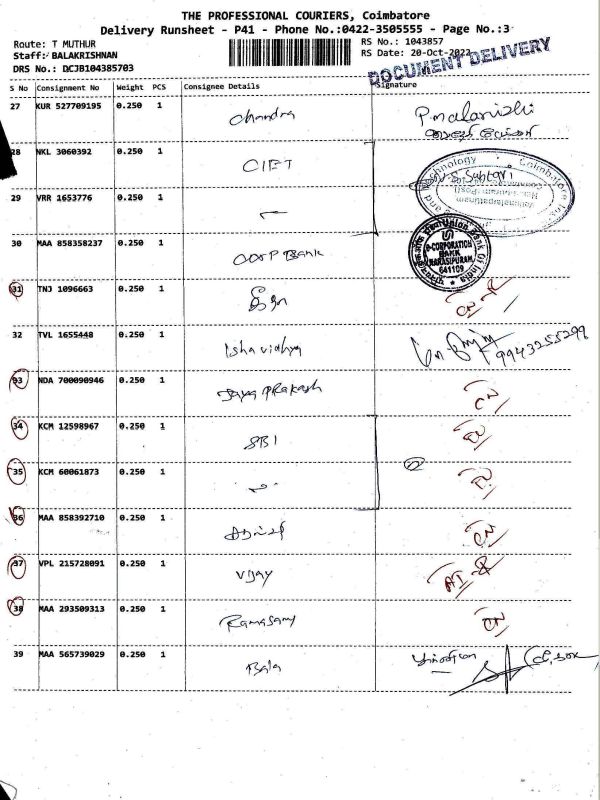 THE PROFESSIONAL COURIERS, Coimbatore
Delivery Runsheet - P41 - Phone No.:0422-3505555 - Page No.:3
Route: T MUTHUR
RS No.: 1043857
Staff: BALAKRISHNAN
RS Date: 20-Oct-2022
DRS No.: DCJB104385703
DOCUMENT DELIVERY
S No Consignment No Weight PCS Consignee Details Signature
27 KUR 527709195 0.250 1 Chandra
28 NKL 3060392 0.250 1 CIET
29 VRR 1653776 0.250 1
30 MAA 858358237 0.250 1 CORP Bank
Union Bank Of India
e-CORPORATION
BANK
NARASIPURAM,
641109
31 TNJ 1096663 0.250 1
32 TVL 1655448 0.250 1 Isha vidhya 9943255299
33 NDA 700090946 0.250 1 Jaya PRakash CN
34 KCM 12598967 0.250 1 SBI
35 KCM 60061873 0.250 1
36 MAA 858392710 0.250 1 CN
37 VPL 215728091 0.250 1 Vijay
38 MAA 293509313 0.250 1 Ramasamy CN
39 MAA 565739029 0.250 1 Bala